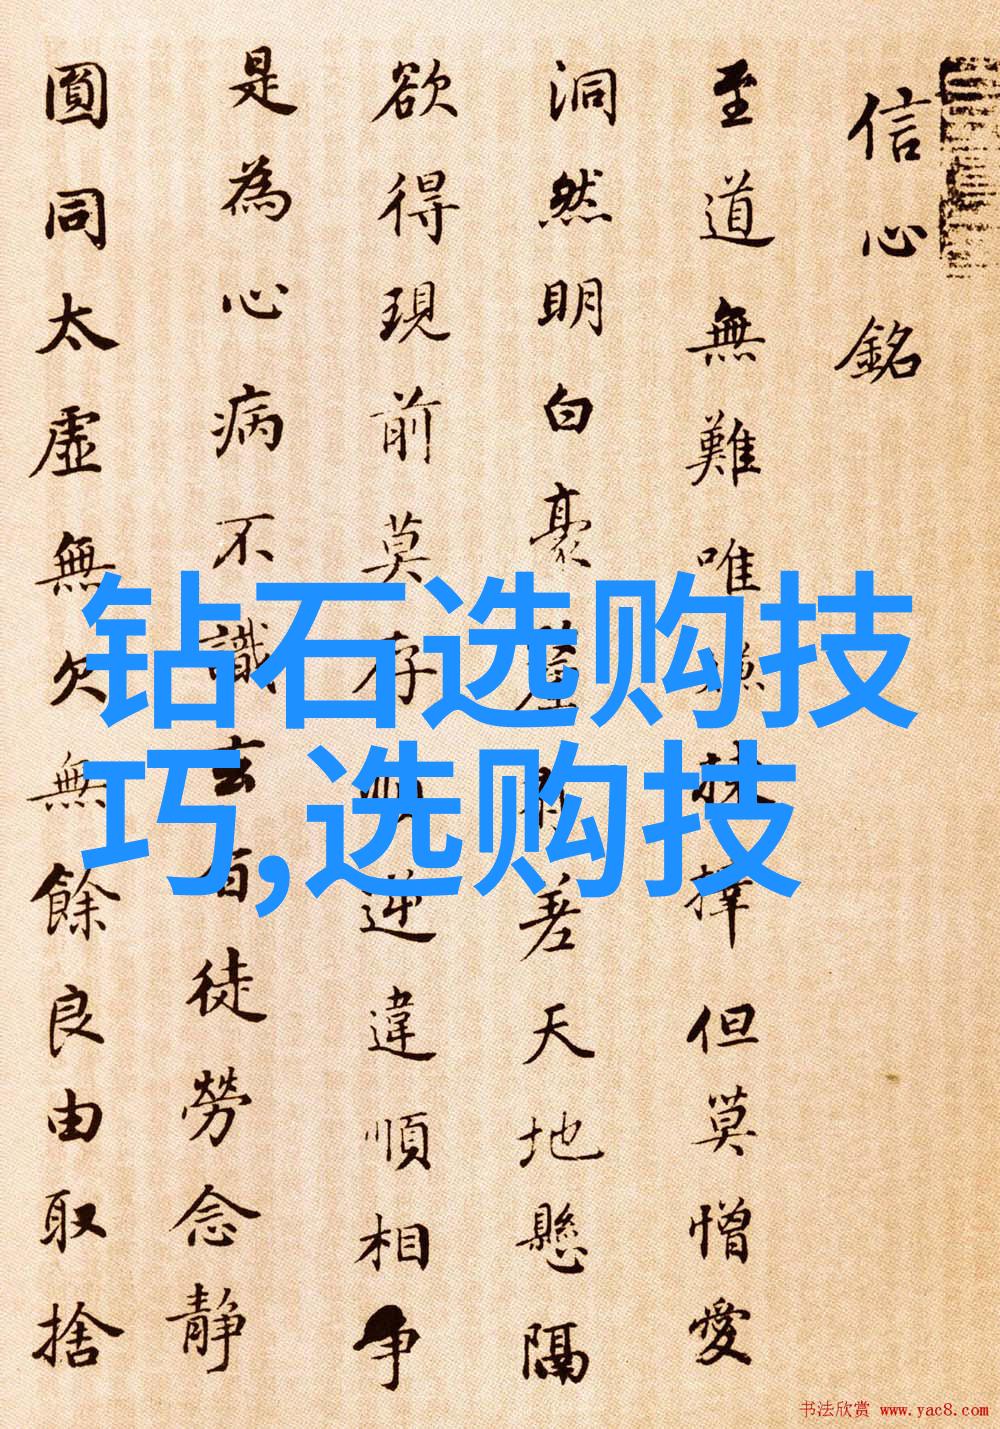 信心銘
至道無難唯嫌揀擇但莫憎愛
洞然明白豪釐有差天地懸隔
欲得現前莫存順逆違順相争
是為心病不識玄旨徒勞念静
圓同太虛無欠無餘良由取捨
钻石选购技
巧,选购技
书法欣赏 www.yac8.com